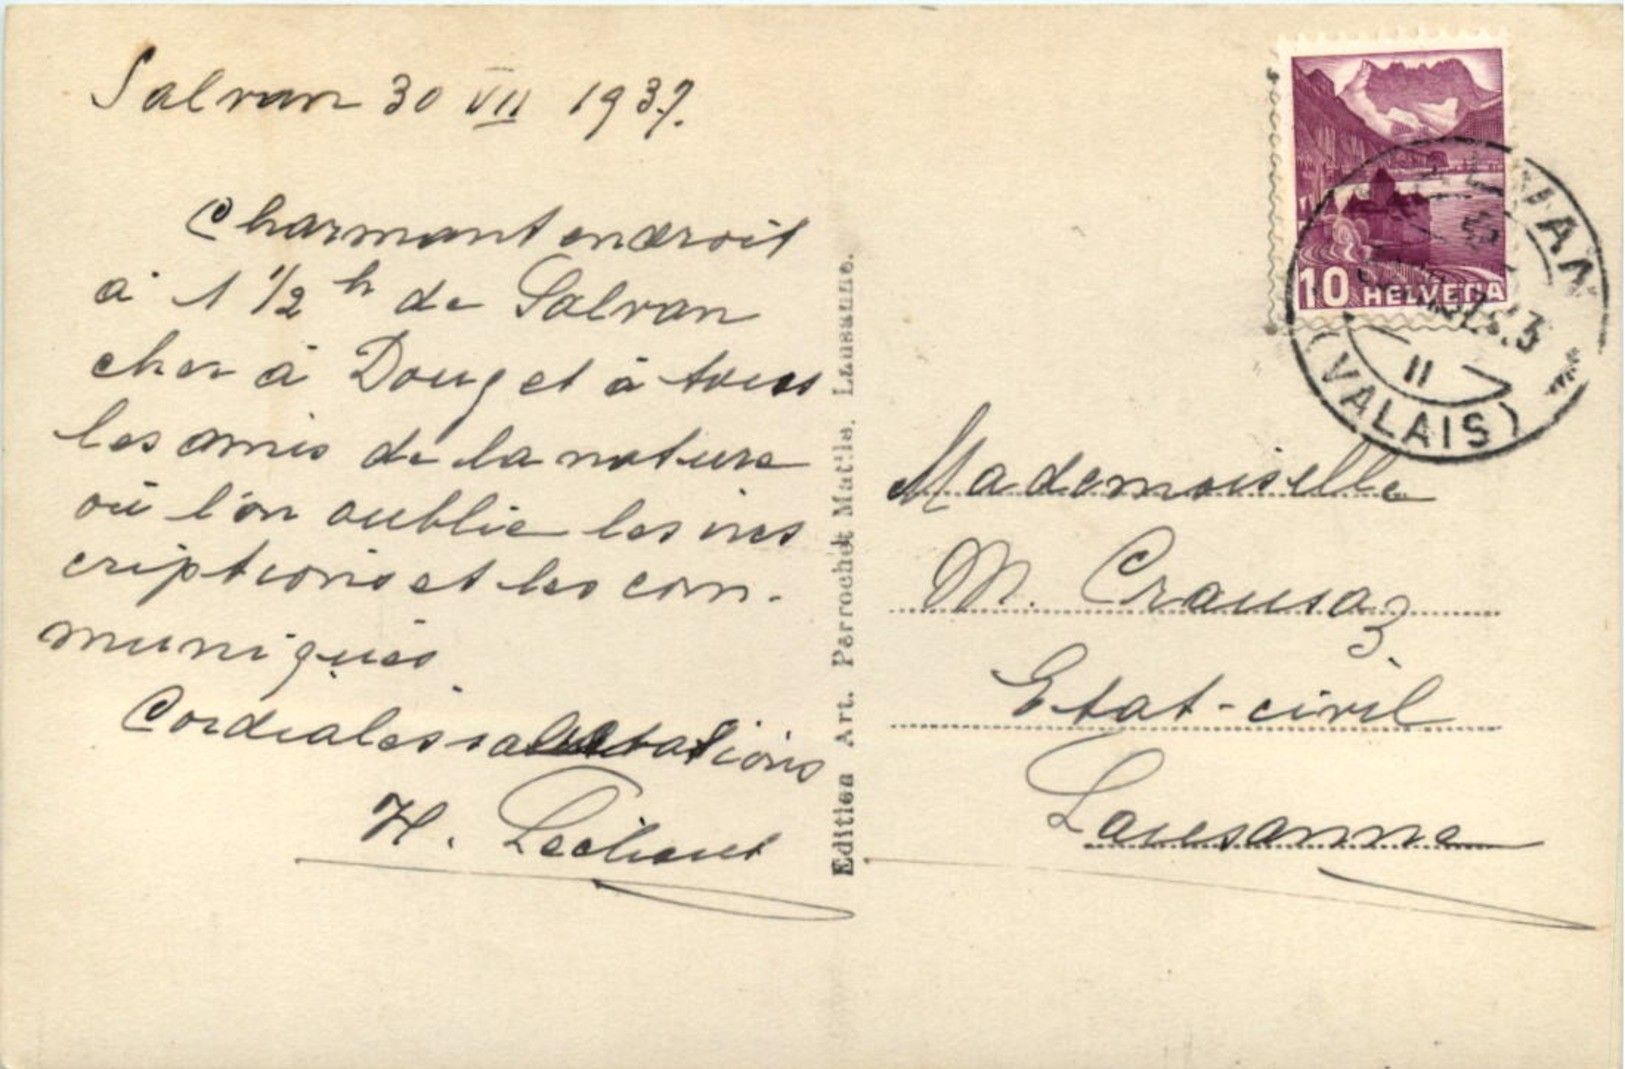 Salvan 30 VII 1937.
Charmant endroit
à 1 1/2 h de Salvan
cher à Doug et à tous
les amis de la nature
où l'on oublie les ins
criptions et les com-
muniqués
Cordiales salutations
H.
Edition Art. Perrochet Matile. Lausanne.
10 HELVETIA
SALVAN
(VALAIS)
Mademoiselle
M. Crausaz
Etat-civil
Lausanne